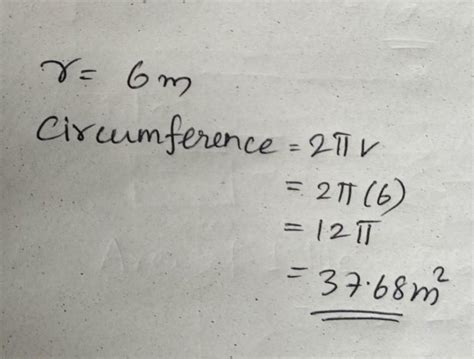 r = 6m
Circumference = 2πr
= 2π(6)
= 12π
= 37.68m²